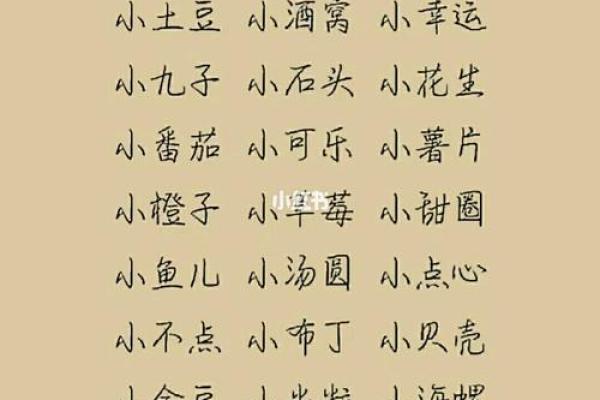 小土豆 小酒窝 小幸运
小九子 小石头 小花生
小番茄 小可乐 小薯片
小橙子 小草莓 小甜圈
小红书
小鱼儿 小汤圆 小点心
小不点 小布丁 小贝壳
小金豆 小米粒 小海螺